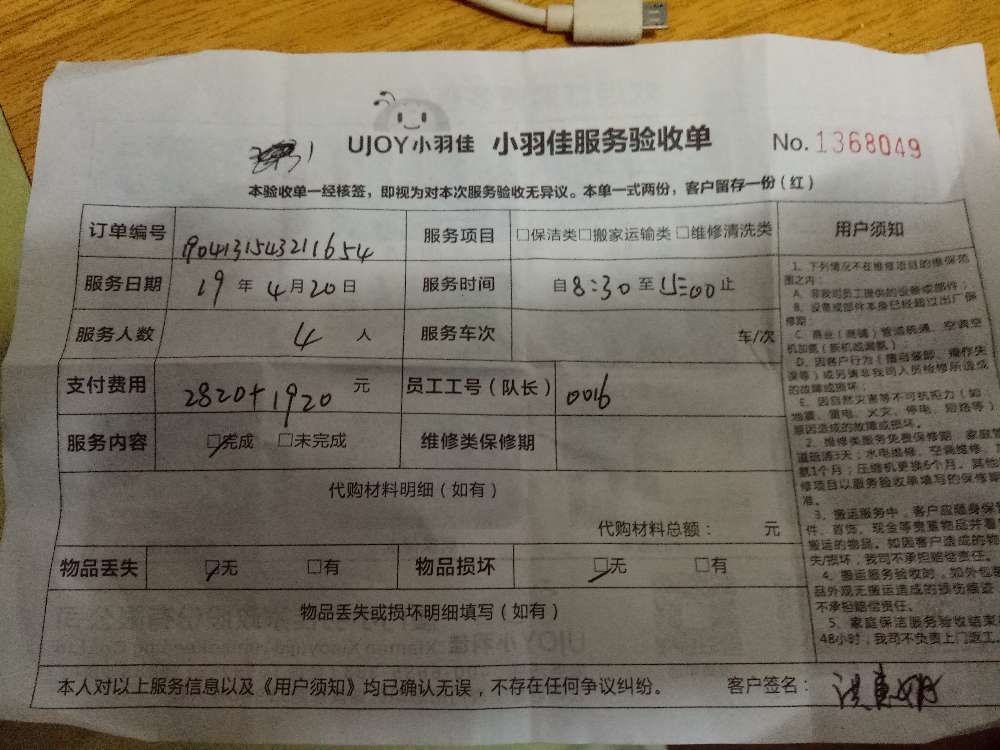 UJOY小羽佳 小羽佳服务验收单 No.1368049
本验收单一经核签，即视为对本次服务验收无异议。本单一式两份，客户留存一份（红）
订单编号 1904131543211654 服务项目 □保洁类□搬家运输类□维修清洗类
服务日期 19年4月20日 服务时间 自8:30至15:00止
服务人数 4人 服务车次 车/次
支付费用 2820+1920元 员工工号（队长） 0016
服务内容 □完成 □未完成 维修类保修期
代购材料明细（如有）
代购材料总额： 元
物品丢失 □无 □有 物品损坏 □无 □有
物品丢失或损坏明细填写（如有）
本人对以上服务信息以及《用户须知》均已确认无误，不存在任何争议纠纷。 客户签名：
用户须知
1、下列情况不在维修项目的维保范
围之内：
A、非我司员工提供的设备或部件；
B、设备或部件本身已经超过出厂保
修期；
C、商业（商铺）管道疏通、空调空
机加氨（拆机或漏氨）；
D、因客户行为（擅自装卸、操作失
误等）或另请非我司人员检修所造成
的故障或损坏；
E、因自然灾害等不可抗拒力（如：
地震、雷电、火灾、停电、短路等）
原因造成的故障或损坏。
2、维修类服务免费保修期，家庭管
道疏通3天；水电维修、空调维修、
氨1个月；压缩机更换6个月。其他
修项目以服务验收单填写的保修期
准。
3、搬运服务中，客户应随身保管
件、首饰、现金等贵重物品并看
搬运的物品。如因客户造成的物
失/损坏，我司不承担赔偿责任。
4、搬运服务验收时，如外包装
品外观无搬运造成的损伤痕迹
不承担赔偿责任。
5、家庭保洁服务验收结束
48小时，我司不负责上门返工。